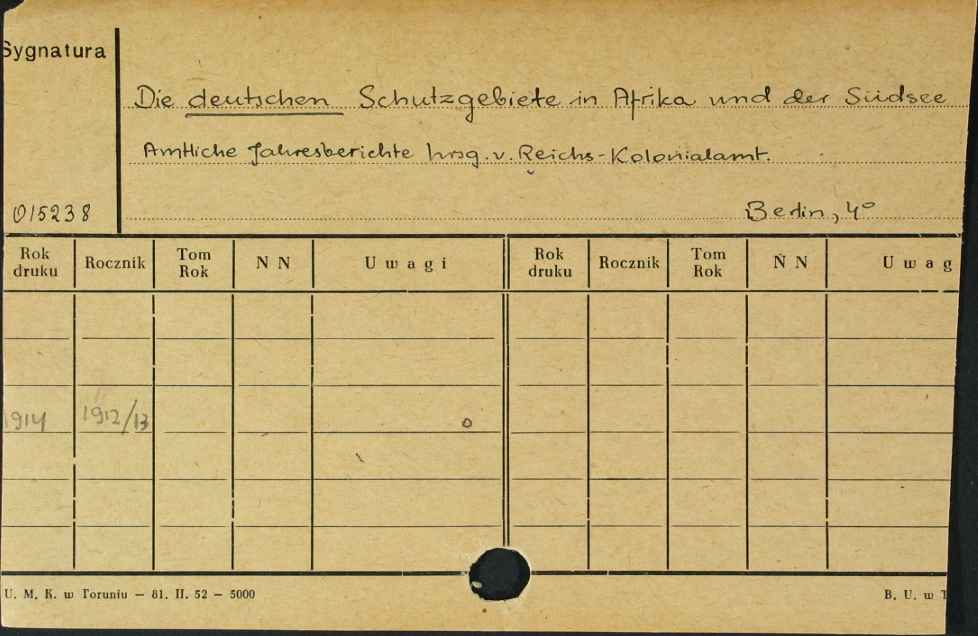 Sygnatura
Die deutschen Schutzgebiete in Afrika und der Südsee
Amtliche Jahresberichte hrsg. v. Reichs-Kolonialamt.
015238
Berlin, 4°
Rok druku Rocznik Tom Rok N N Uwagi Rok druku Rocznik Tom Rok N N Uwag
1914 1912/13
U. M. K. w Toruniu — 81. II. 52 — 5000 B. U. w T